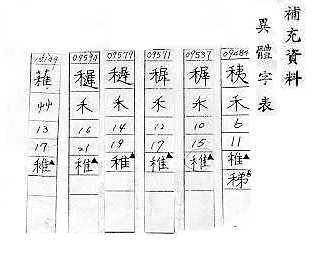 補充資料
異體字表
09484
䄺
禾
6
11
稚▲
稊▲
09537
禾
10
15
稚▲
09571
稺
禾
12
17
稚▲
09579
禾
14
19
稚▲
09594
禾
16
21
稚▲
艸
13
17
稚▲